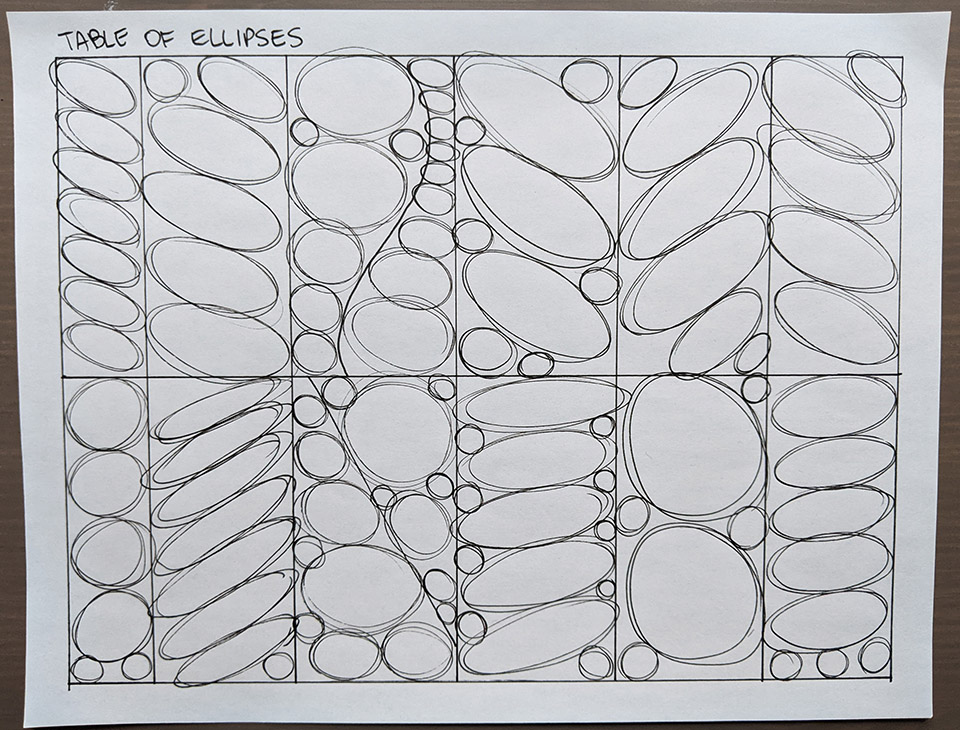 TABLE OF ELLIPSES